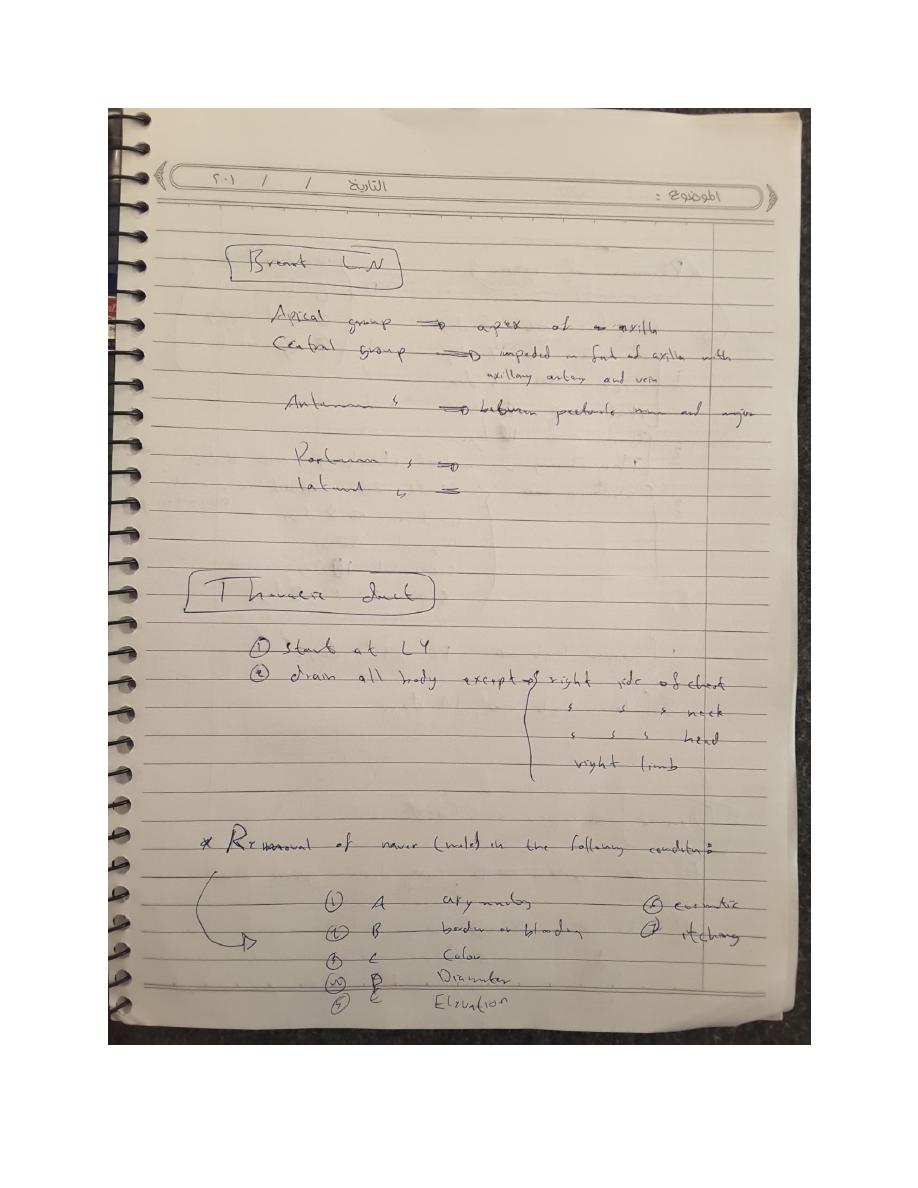 الموضوع : التاريخ / / ٢٠١
Breast LN
Apical group ⇒ apex of axilla
Central group ⇒ impeded in fat of axilla with
axillary artery and vein
Anterior ⇒ between pectoralis minor and major
Posterior ⇒
lateral =
Thoracic duct
① start at L4
② drain all body except of right side of chest
neck
head
right limb
* Removal of never (mole) in the following condition:
① A asymmetry ⑥ cosmetic
② B border or bleeding ⑦ itching
③ C Colour
④ D Diameter
⑤ E Elevation